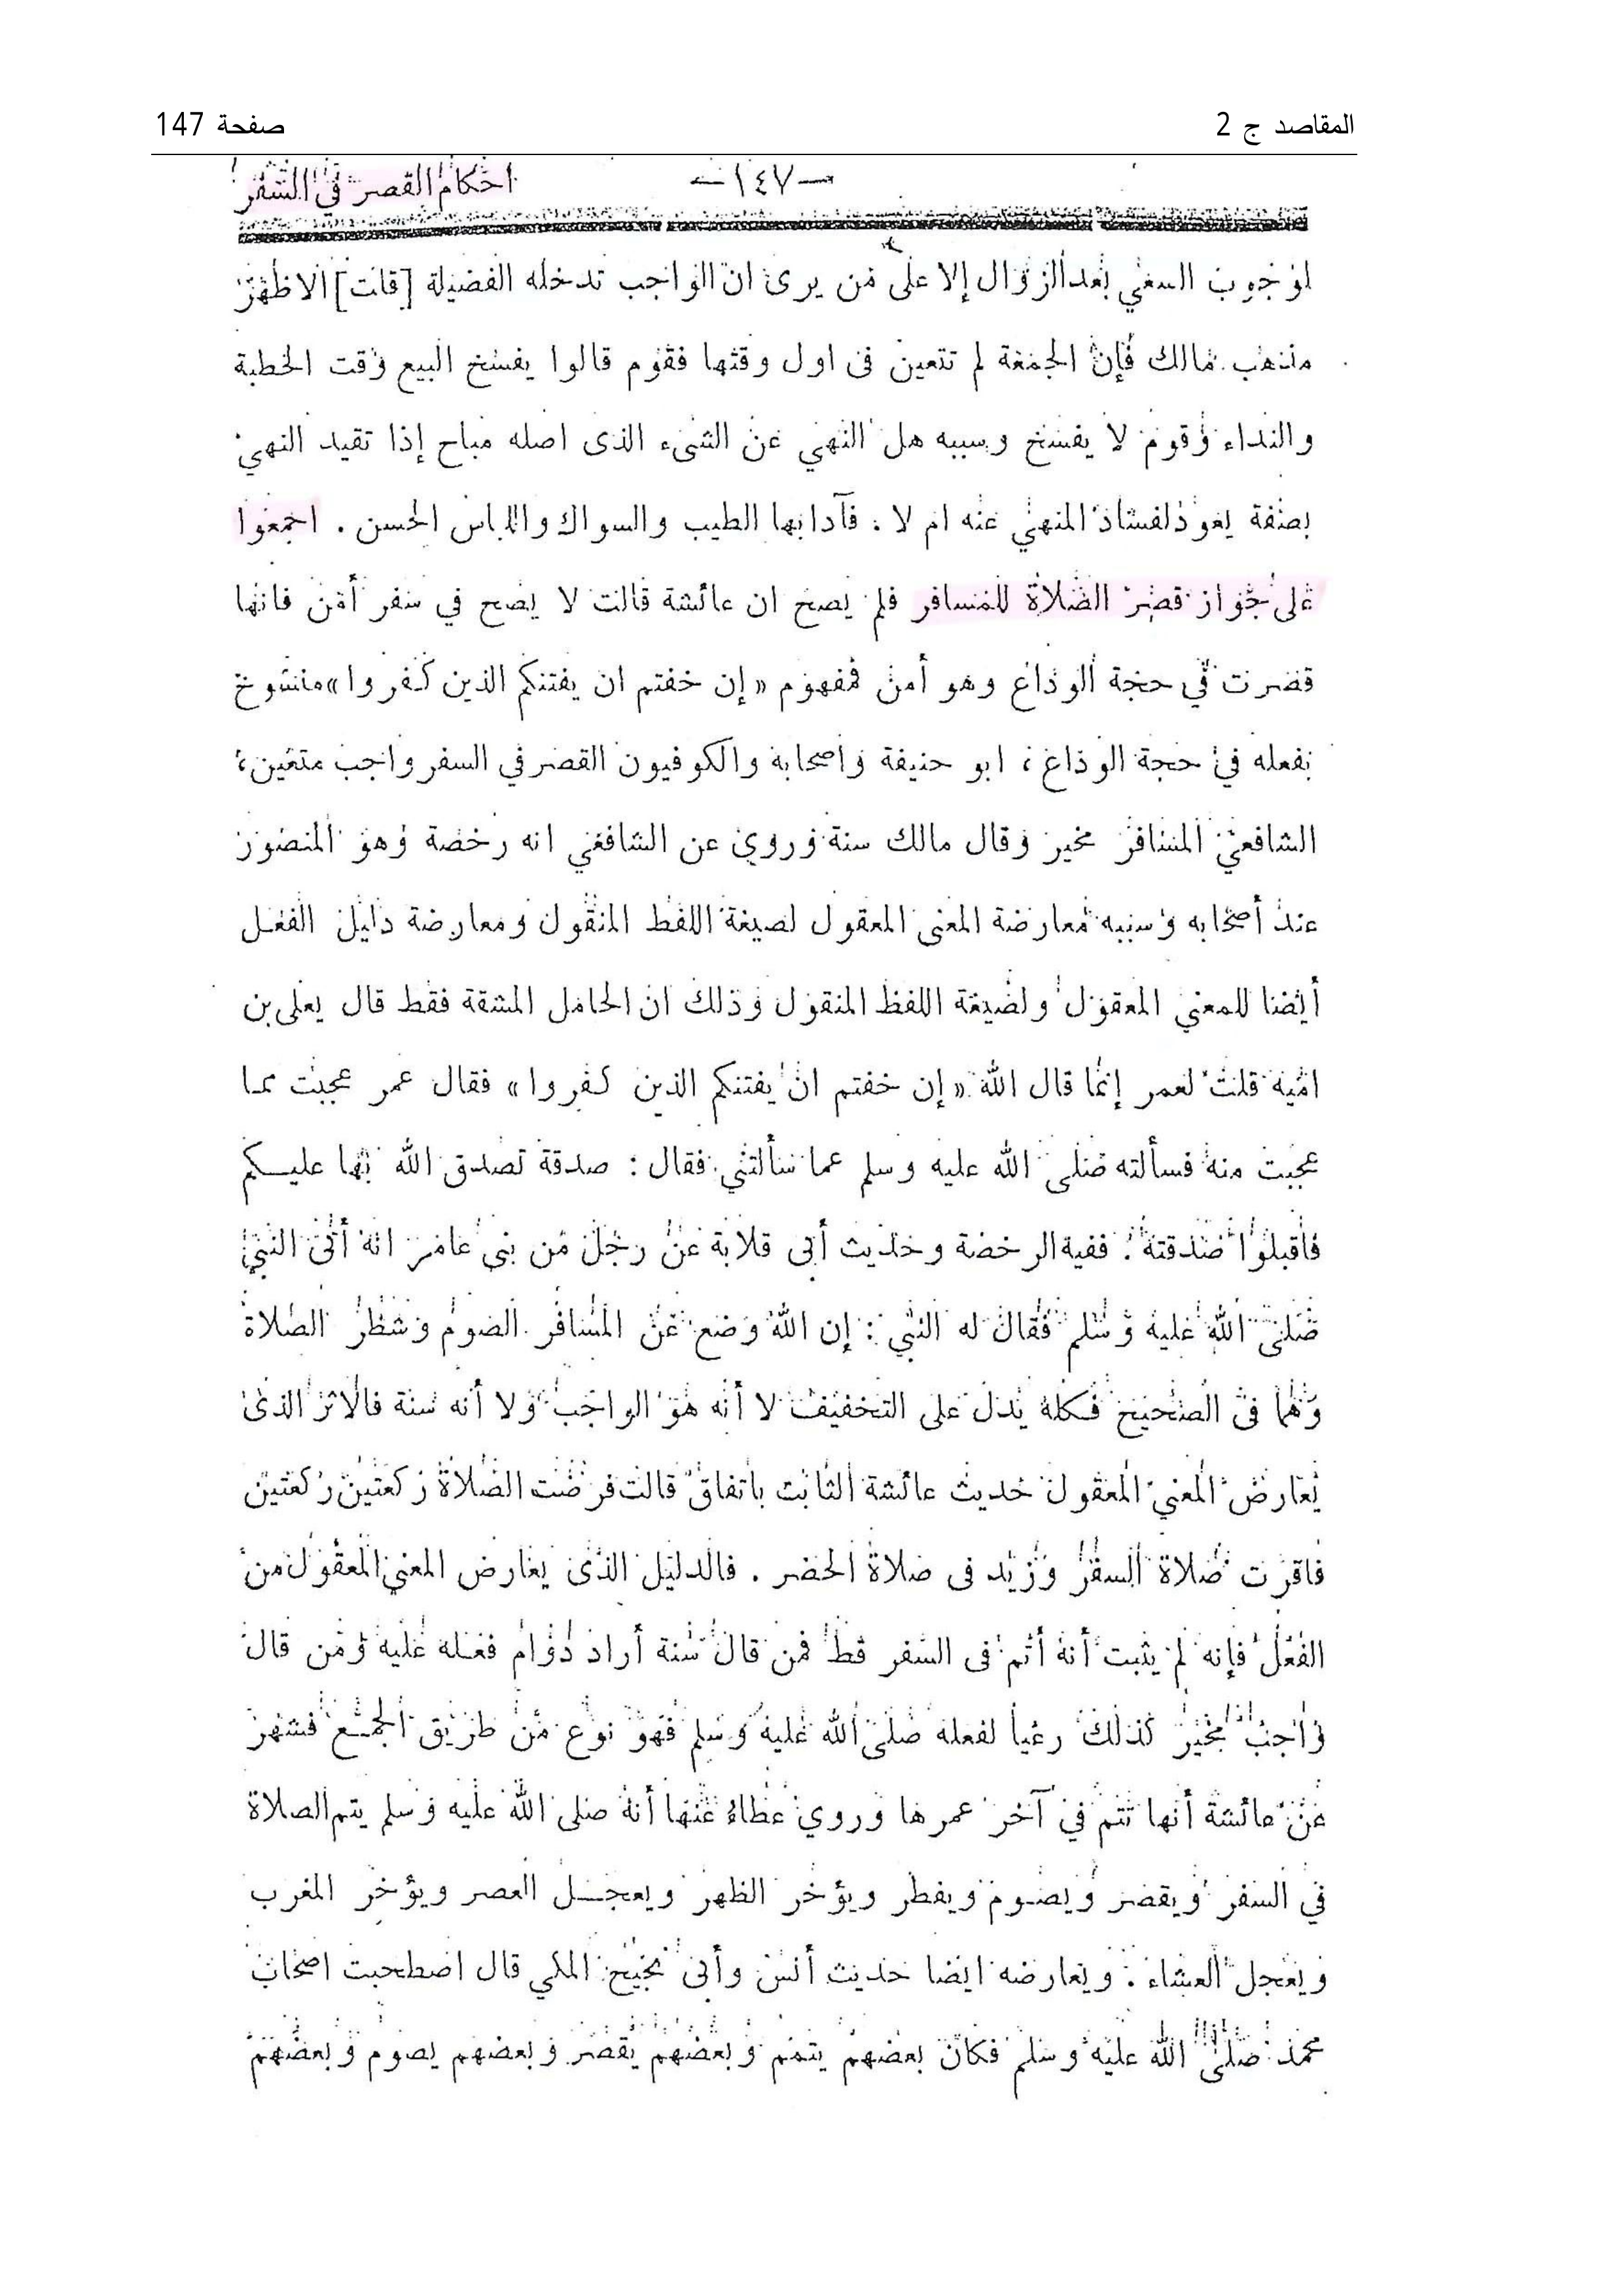 المقاصد ج 2
صفحة 147
-١٤٧-
احكام القصر في السفر
لوجوب السعي بعد الزوال إلا على من يرى ان الواجب تدخله الفضيلة [قلت] الاظهر
مذهب مالك فإن الجمعة لم تتعين فى اول وقتها فقوم قالوا يفسخ البيع وقت الخطبة
والنداء وقوم لا يفسخ وسببه هل النهي عن الشىء الذى اصله مباح إذا تقيد النهي
بصفة يعود لفساد المنهي عنه ام لا . فآدابها الطيب والسواك واللباس الحسن . اجمعوا
على جواز قصر الصلاة للمسافر فلم يصح ان عائشة قالت لا يصح في سفر أمن فانها
قصرت في حجة الوداع وهو أمن فمفهوم «إن خفتم ان يفتنكم الذين كفروا» منسوخ
بفعله في حجة الوداع ، ابو حنيفة واصحابه والكوفيون القصر في السفر واجب متعين ،
الشافعي المسافر مخير وقال مالك سنة وروي عن الشافعي انه رخصة وهو المنصور
عند أصحابه وسببه معارضة المعنى المعقول لصيغة اللفظ المنقول ومعارضة دليل الفعل
أيضا للمعنى المعقول ولصيغة اللفظ المنقول وذلك ان الحامل المشقة فقط قال يعلى بن
امية قلت لعمر إنما قال الله «إن خفتم ان يفتنكم الذين كفروا» فقال عمر عجبت مما
عجبت منه فسألته صلى الله عليه وسلم عما سألتني فقال : صدقة تصدق الله بها عليكم
فاقبلوا صدقته . ففيه الرخصة وحديث أبى قلابة عن رجل من بنى عامر انه أتى النبي
صلى الله عليه وسلم فقال له النبي : إن الله وضع عن المسافر الصوم وشطر الصلاة
وهما فى الصحيح فكله يدل على التخفيف لا أنه هو الواجب ولا أنه سنة فالاثر الذى
يعارض المعنى المعقول حديث عائشة الثابت باتفاق قالت فرضت الصلاة ركعتين ركعتين
فاقرت صلاة السفر وزيد فى صلاة الحضر . فالدليل الذى يعارض المعنى المعقول من
الفعل فإنه لم يثبت أنه أتم فى السفر قط فمن قال سنة أراد دوام فعله عليه ومن قال
واجب مخير كذلك رعيا لفعله صلى الله عليه وسلم فهو نوع من طريق الجمع فشهر
عن عائشة أنها تتم في آخر عمرها وروي عطاء عنها أنه صلى الله عليه وسلم يتم الصلاة
في السفر ويقصر ويصوم ويفطر ويؤخر الظهر ويعجل العصر ويؤخر المغرب
ويعجل العشاء . ويعارضه ايضا حديث أنس وأبى نجيح المكي قال اصطحبت اصحاب
محمد صلى الله عليه وسلم فكان بعضهم يتمم وبعضهم يقصر وبعضهم يصوم وبعضهم